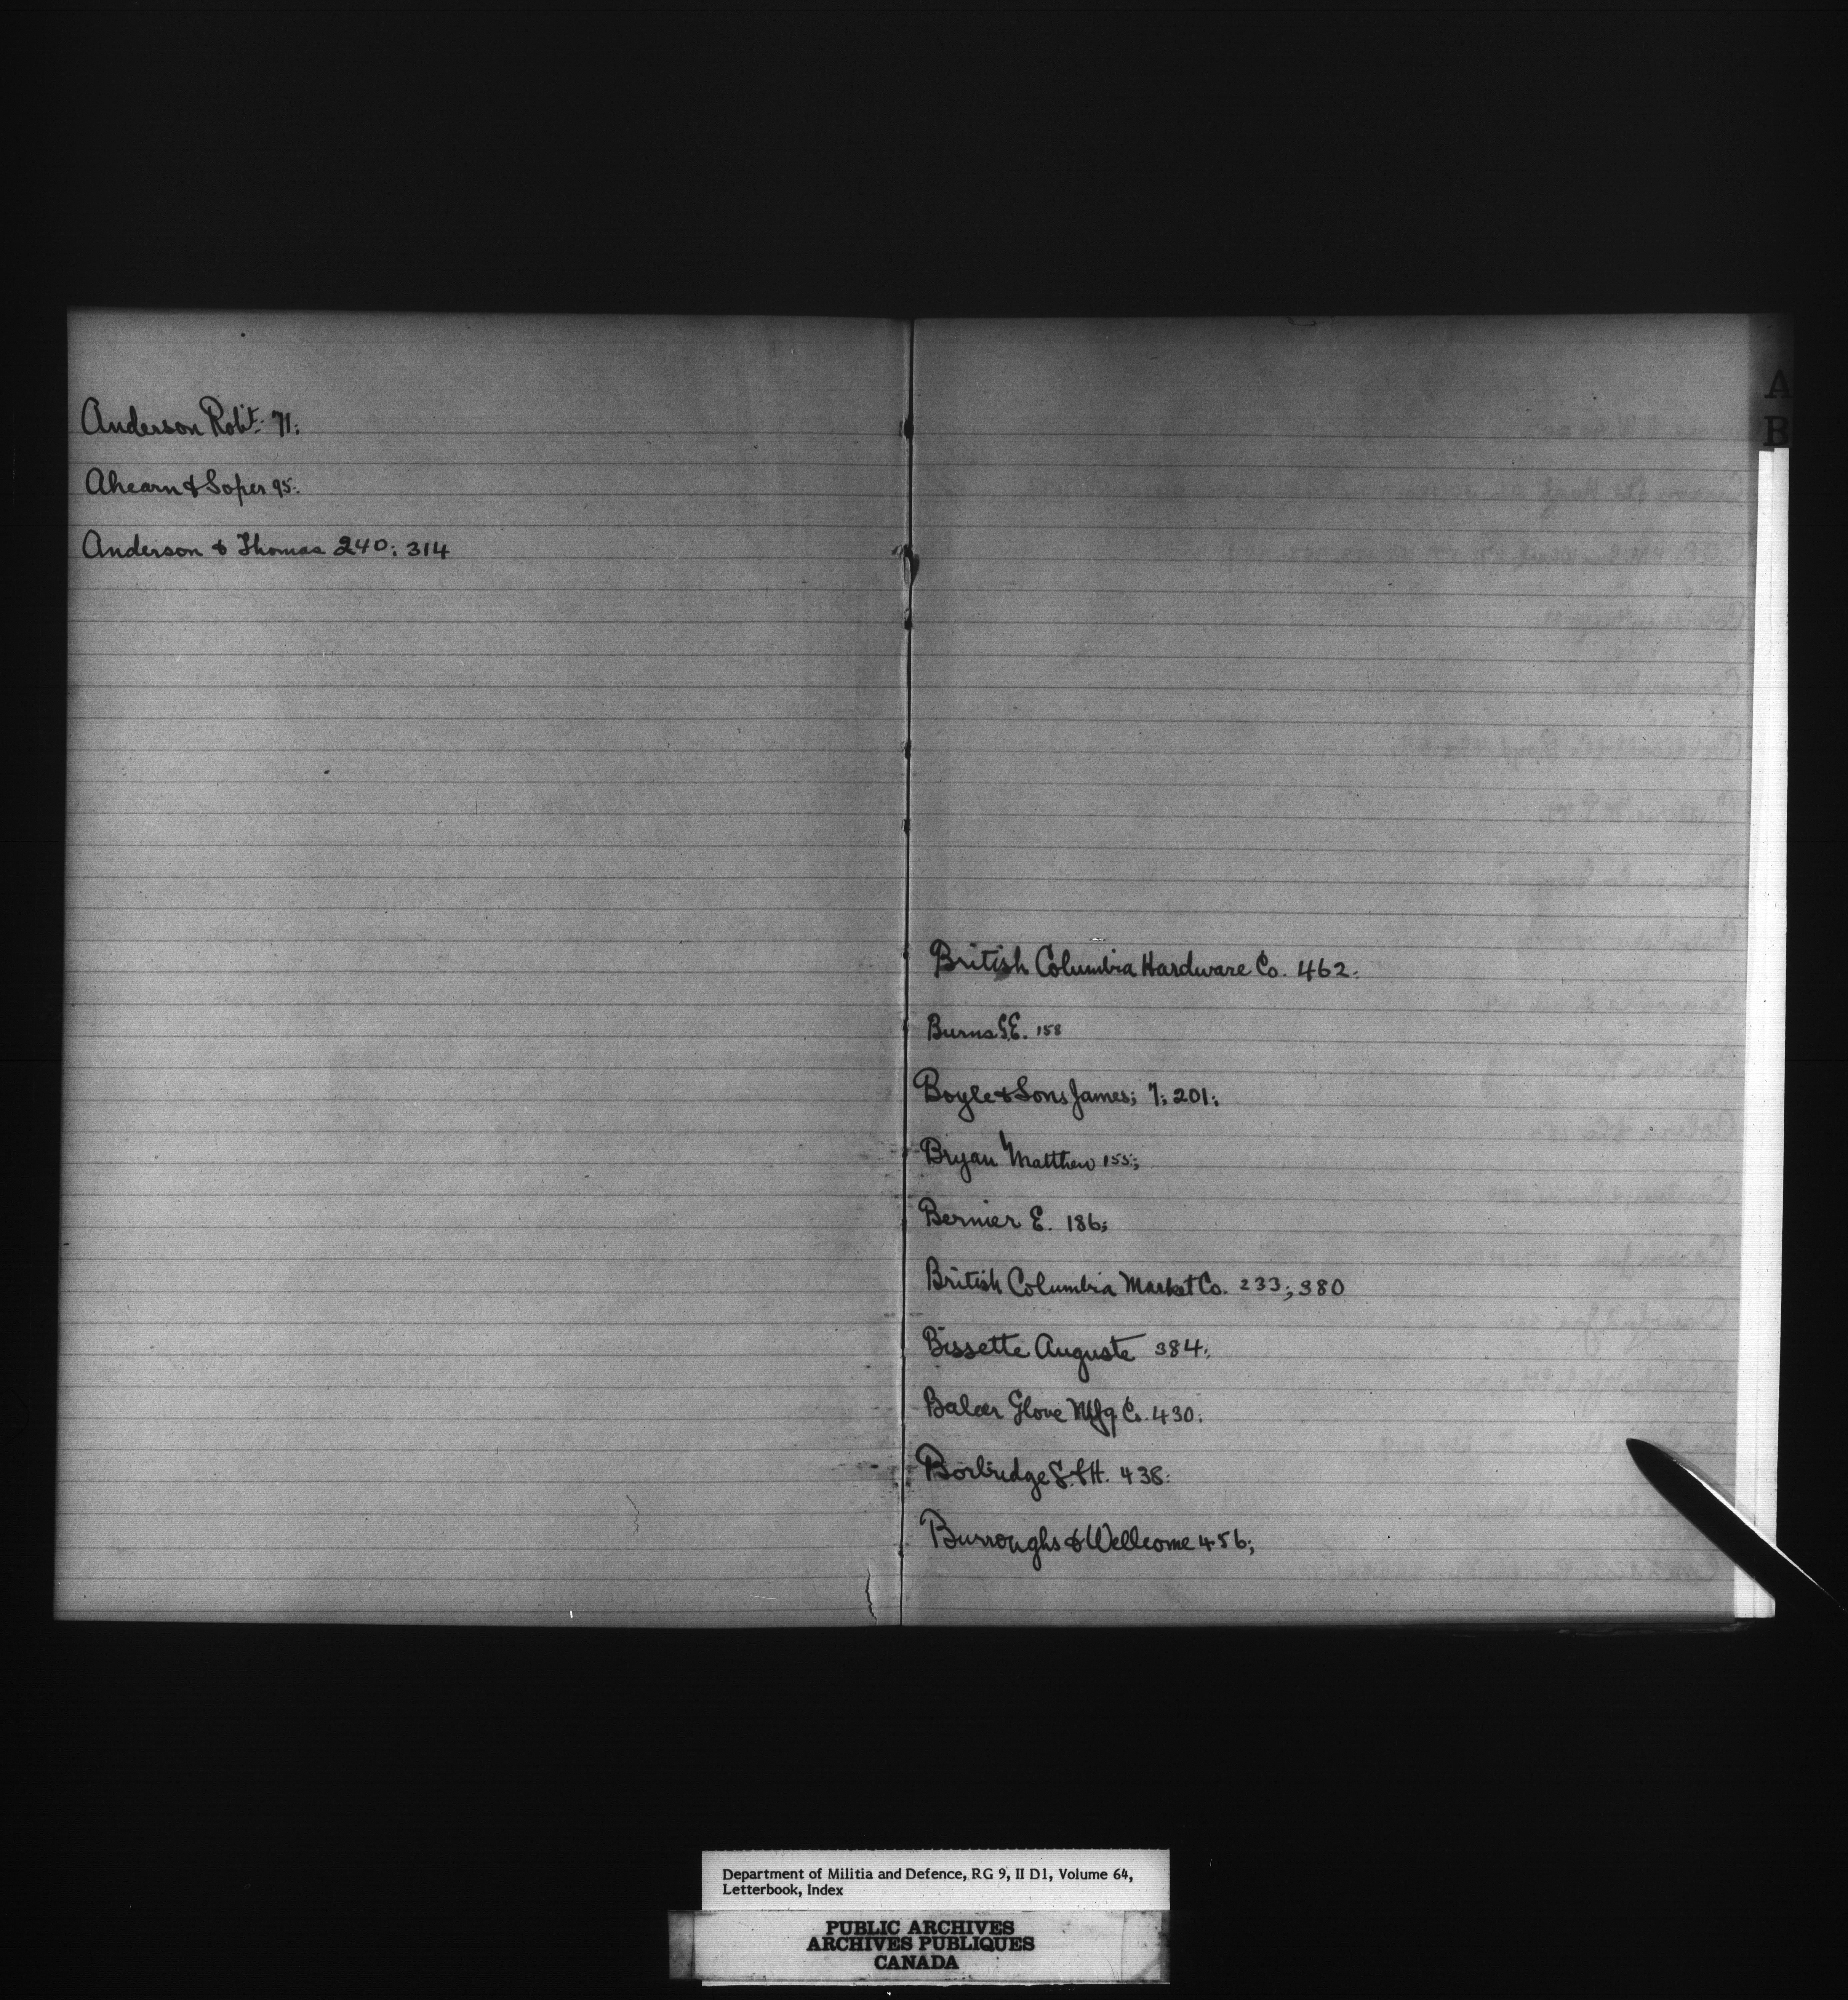 Anderson Robt. 71;
Ahearn & Soper 95;
Anderson & Thomas 240; 314
A
B
British Columbia Hardware Co. 462;
Burns G.E. 158
Boyle & Sons James; 7; 201;
Bryan Matthew 155;
Bernier E. 186;
British Columbia Market Co. 233; 380
Bissette Auguste 384;
Balcer Glove Mfg. Co. 430;
Borbridge S. & H. 438;
Burroughs & Wellcome 456;
Department of Militia and Defence, RG 9, II D1, Volume 64,
Letterbook, Index
PUBLIC ARCHIVES
ARCHIVES PUBLIQUES
CANADA